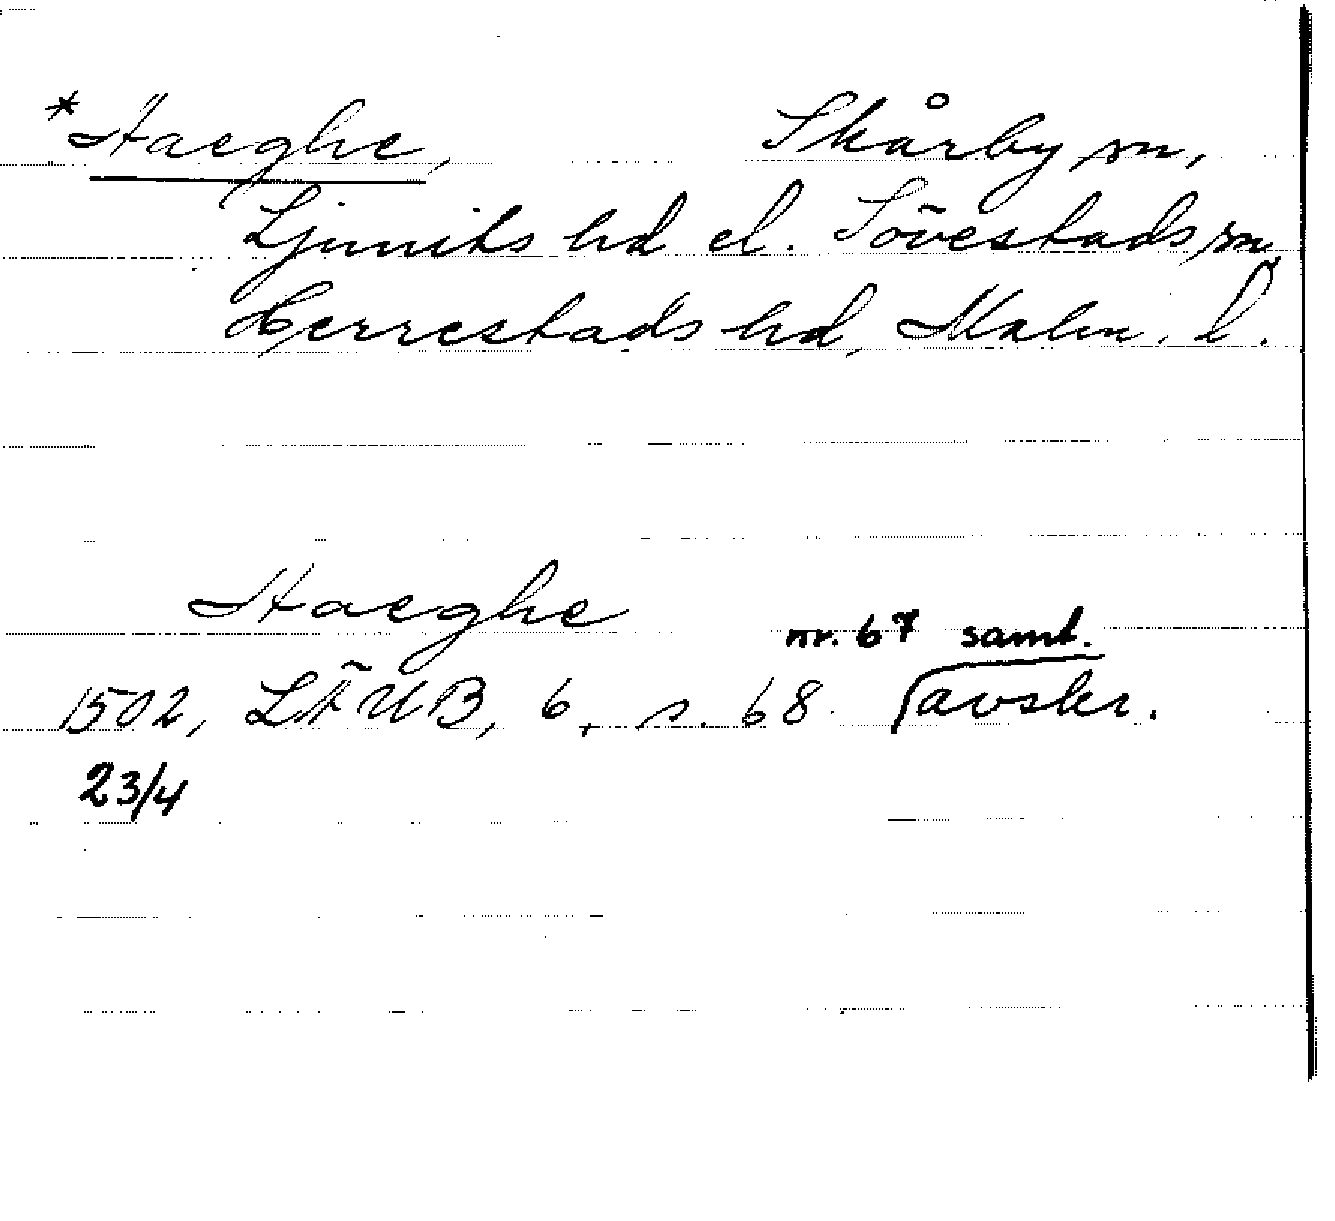 *Haeghe, Skårby sn,
Ljunits hd el. Sövestads sn
Herrestads hd, Malm. l.
Haeghe
nr. 67 samt.
1502, LÄUB, 6, s. 68. avskr.
23/4